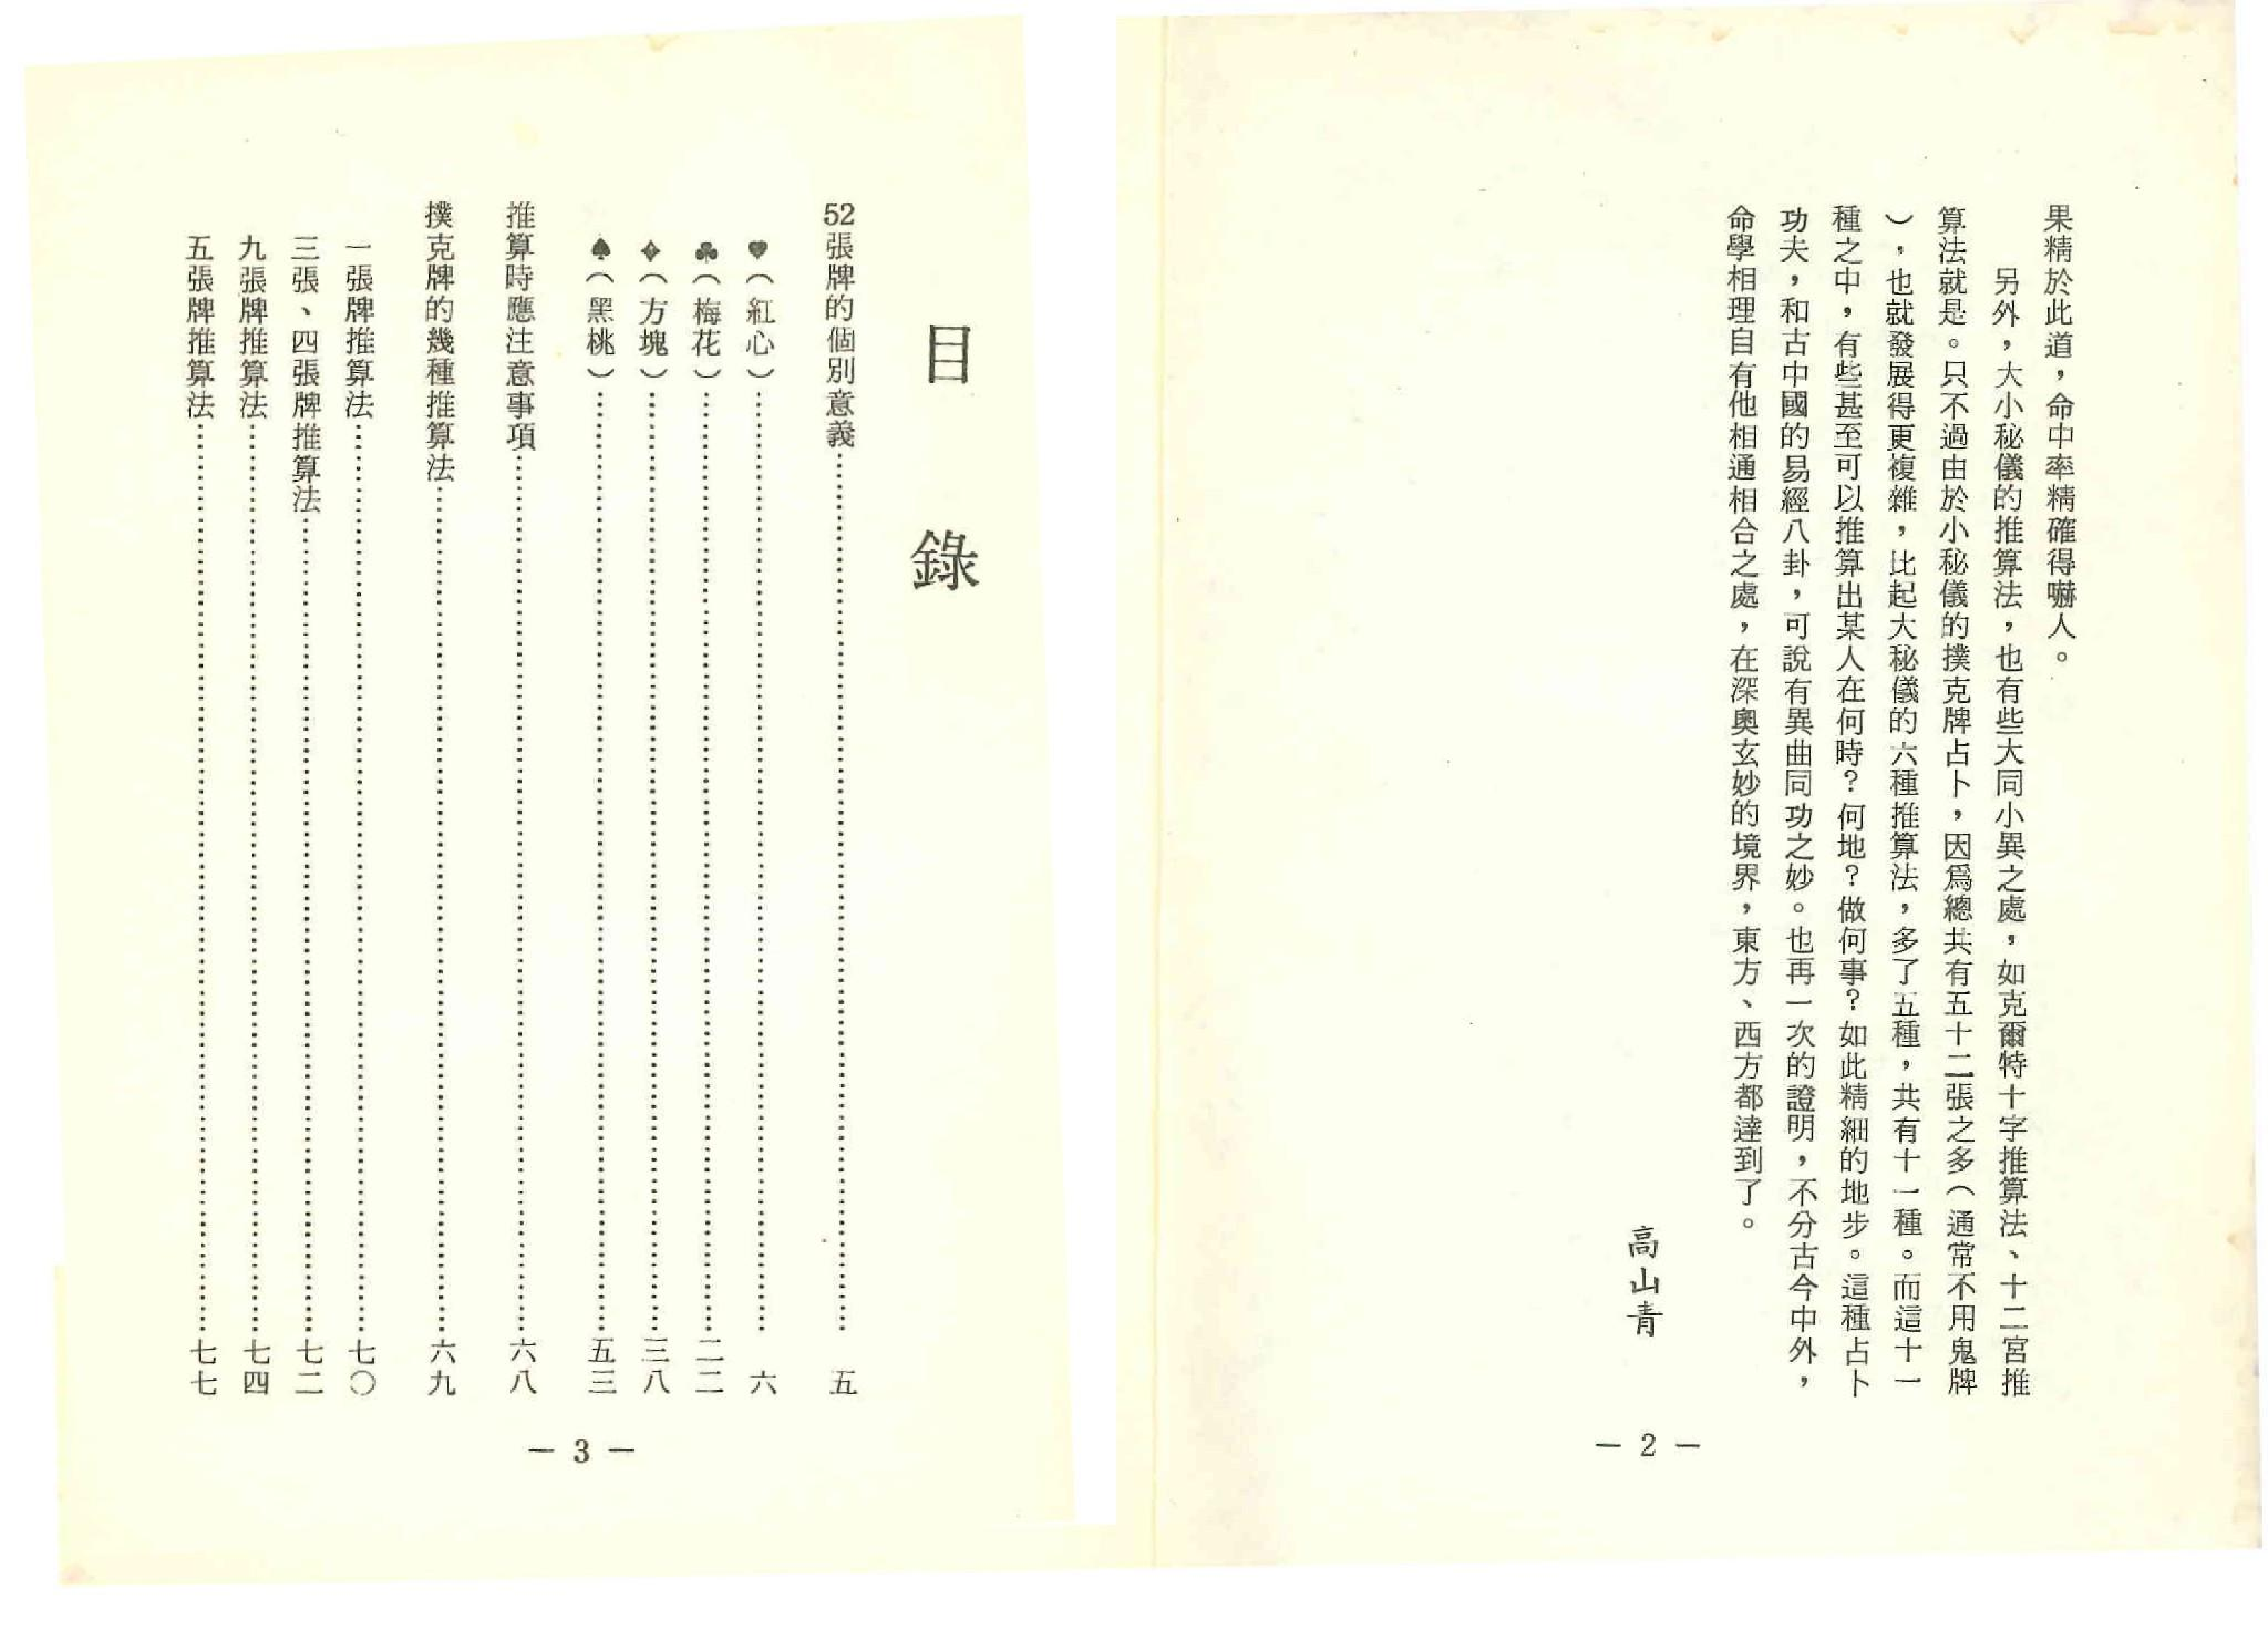 果精於此道，命中率精確得嚇人。
另外，大小秘儀的推算法，也有些大同小異之處，如克爾特十字推算法、十二宮推
算法就是。只不過由於小秘儀的撲克牌占卜，因爲總共有五十二張之多（通常不用鬼牌
），也就發展得更複雜，比起大秘儀的六種推算法，多了五種，共有十一種。而這十一
種之中，有些甚至可以推算出某人在何時？何地？做何事？如此精細的地步。這種占卜
功夫，和古中國的易經八卦，可說有異曲同功之妙。也再一次的證明，不分古今中外，
命學相理自有他相通相合之處，在深奧玄妙的境界，東方、西方都達到了。
高山青
— 2 —
目錄
52張牌的個別意義……………………五
♥（紅心）……………………六
♣（梅花）……………………二二
♦（方塊）……………………三八
♠（黑桃）……………………五三
推算時應注意事項……………………六八
撲克牌的幾種推算法……………………六九
一張牌推算法……………………七〇
三張、四張牌推算法……………………七二
九張牌推算法……………………七四
五張牌推算法……………………七七
— 3 —